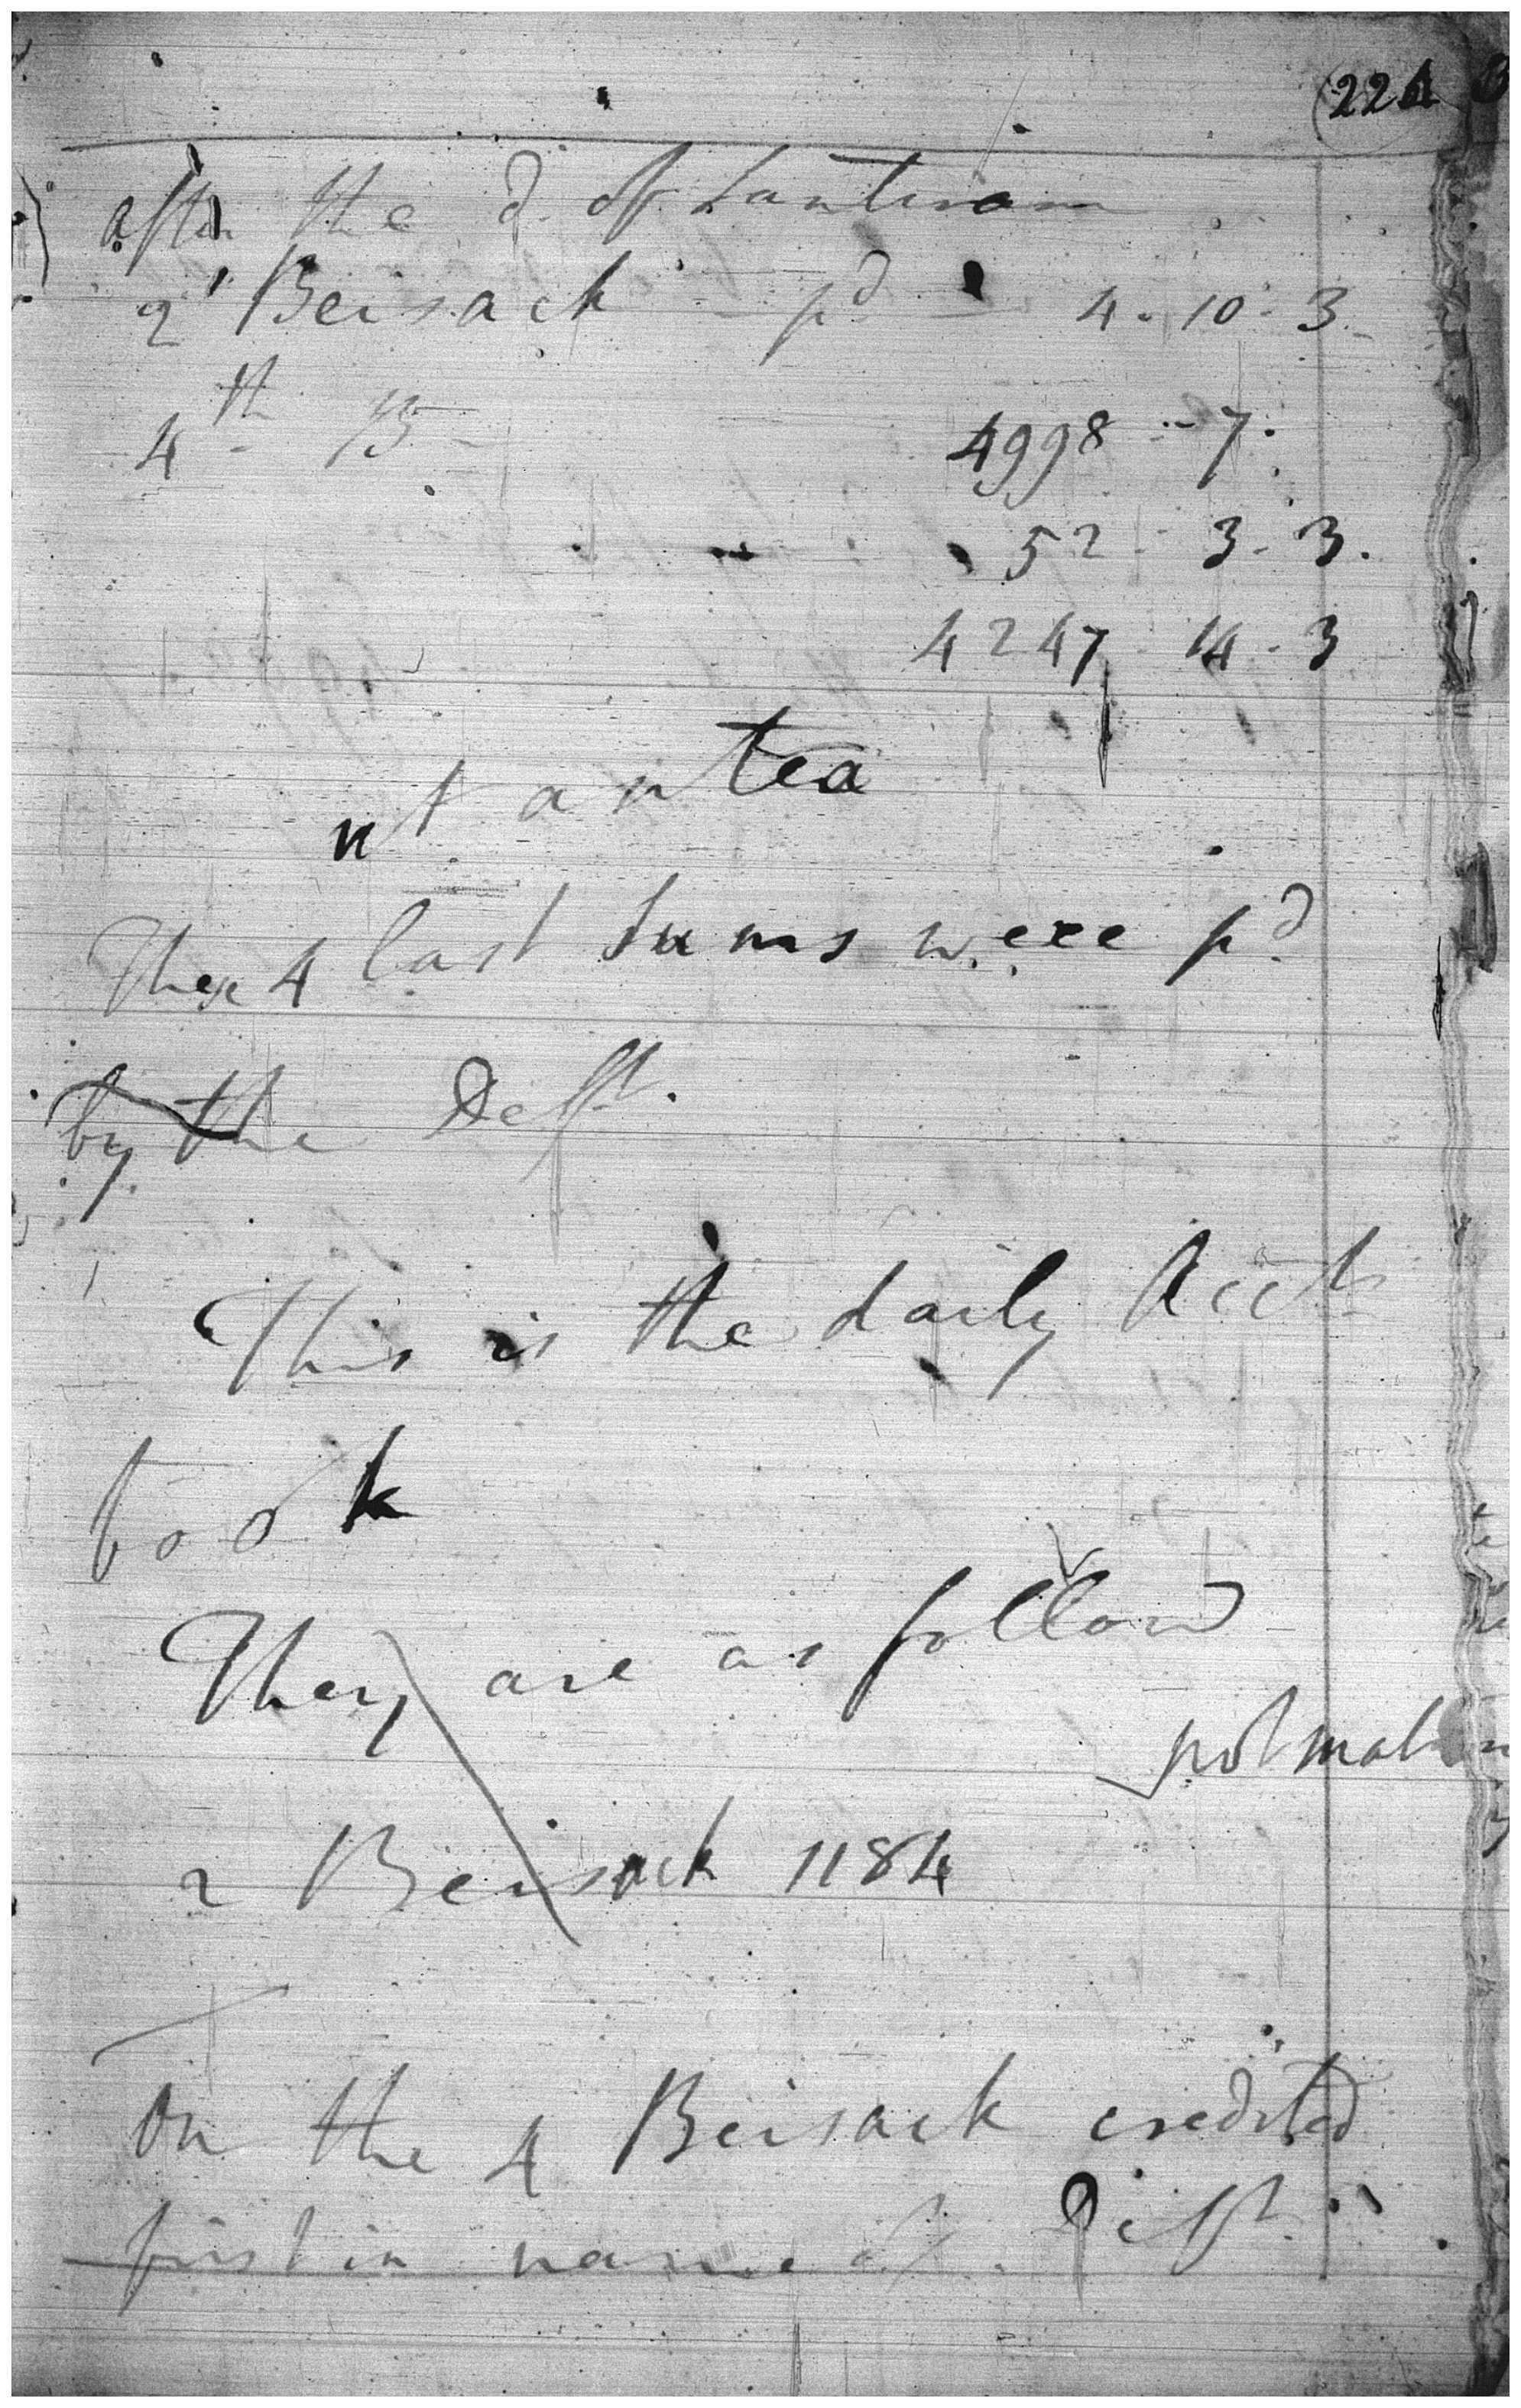 (224
after the d. of Santiram
2d Beisack pd 4 - 10 - 3
4th 15 4998 - 7
52 - 3 - 3.
4247 - 14 - 3
ut antea
These 4 last sums were pd
by the Defft.
This is the daily Acct
book
They are as follow
2 Beisack 1184
On the 4 Beisack credited
first in name of Defft.